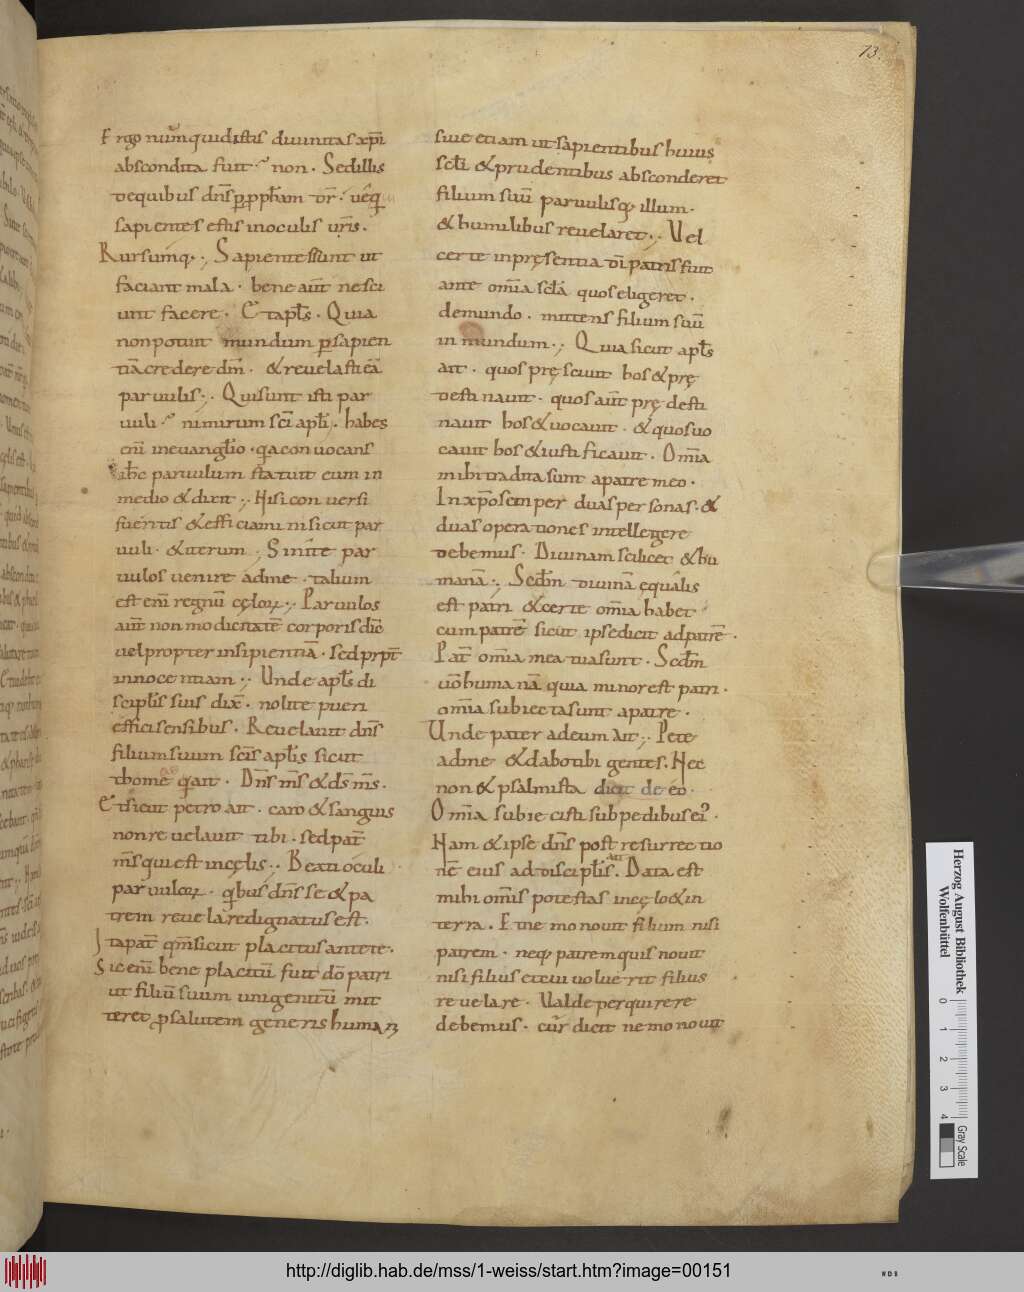 73.
Ergo nūmquidistis divinitas xp̄i
abscondita fuit non. Sedillis
dequibus dn̄s p̱ pph̄am dr̄. uęq
sapientes estis inoculis ur̄is.
Rursumq.; Sapientessunt ut
faciant mala. bene aūt nesci
unt facere. Et apl̄s. Quia
nonpotuit mundum p̱sapien
tiācredere dm̄. &revelasti eā
parvulis.; Qui sunt isti par
vuli nimirum sc̄i apl̄i. habes
enī inevangl̄io. qa convocans
ihc parvulum statuit eum in
medio & dixit.; Nisi con versi
fueritis & efficiamini sicut par
vuli. & iterum.; Sinite par
vulos venire adme. talium
est enī regnū cęloꝝ.; Parvulos
aūt non modicitatē corporis dic̄
vel propter insipientiā. sed prpt̄
innocentiam.; Unde apl̄s di
scipl̄is suis dix̄. nolite pueri
effici sensibus. Revelavit dn̄s
filium suum scīs apl̄is sicut
thome qait. Dn̄s m̄s & ds m̄s.
Et sicut petro ait. caro & sanguis
non revelavit tibi. sed pat̄
m̄s qui est incęlis.; Beati oculi
parvuloꝝ. qbus dn̄s se & pa
trem revelare dignatus est.
Ita pat̄ qm̄ sicut placitus ante te.
Sic enī bene placitū fuit dō patri
ut filiū suum unigenitū mit
teret p̱salutem generis human
sive etiam ut sapientibus huius
scl̄i & prudentibus absconderet
filium suū parvulisq; illum.
& humilibus revelaret.; Vel
certe inpręsentia dī patris fuit
ante om̄ia scl̄a quos eligeret.
demundo. mittens filium suū
in mundum.; Quia sicut apl̄s
ait. quos pręscivit hos & prę
destinavit. quos aūt prędesti
navit hos & vocavit. & quos vo
cavit hos & iustificavit. Om̄ia
mihi tradita sunt apatre meo.
In xp̄o semper duas personas. &
duas operationes intellegere
debemus. Divinam scilicet & hu
manā.; Scdm̄ divinā ęqualis
est patri & certe om̄ia habet
cum patrē sicut ipse dicit ad patrē.
Pat̄ om̄ia mea tua sunt. Scdm̄
uō humanā quia minor est patri.
om̄ia subiecta sunt apatre.
Unde pater ad eum ait.; Pete
adme & dabo tibi gentes. Nec
non & psalmista dicit de eo.
Om̄ia subiecisti sub pedibus ei'.
Nam & ipse dn̄s post resurrectio
nē eius ad discipl̄is ait. Data est
mihi om̄is potestas incęlo & in
terra. Et nemo novit filium nisi
patrem. neq; patrem quis novit
nisi filius et cui voluerit filius
revelare. Valde perquirere
debemus. cūr dicit nemo novit
Herzog August Bibliothek
Wolfenbüttel
0 1 2 3 4
Gray Scale
http://diglib.hab.de/mss/1-weiss/start.htm?image=00151